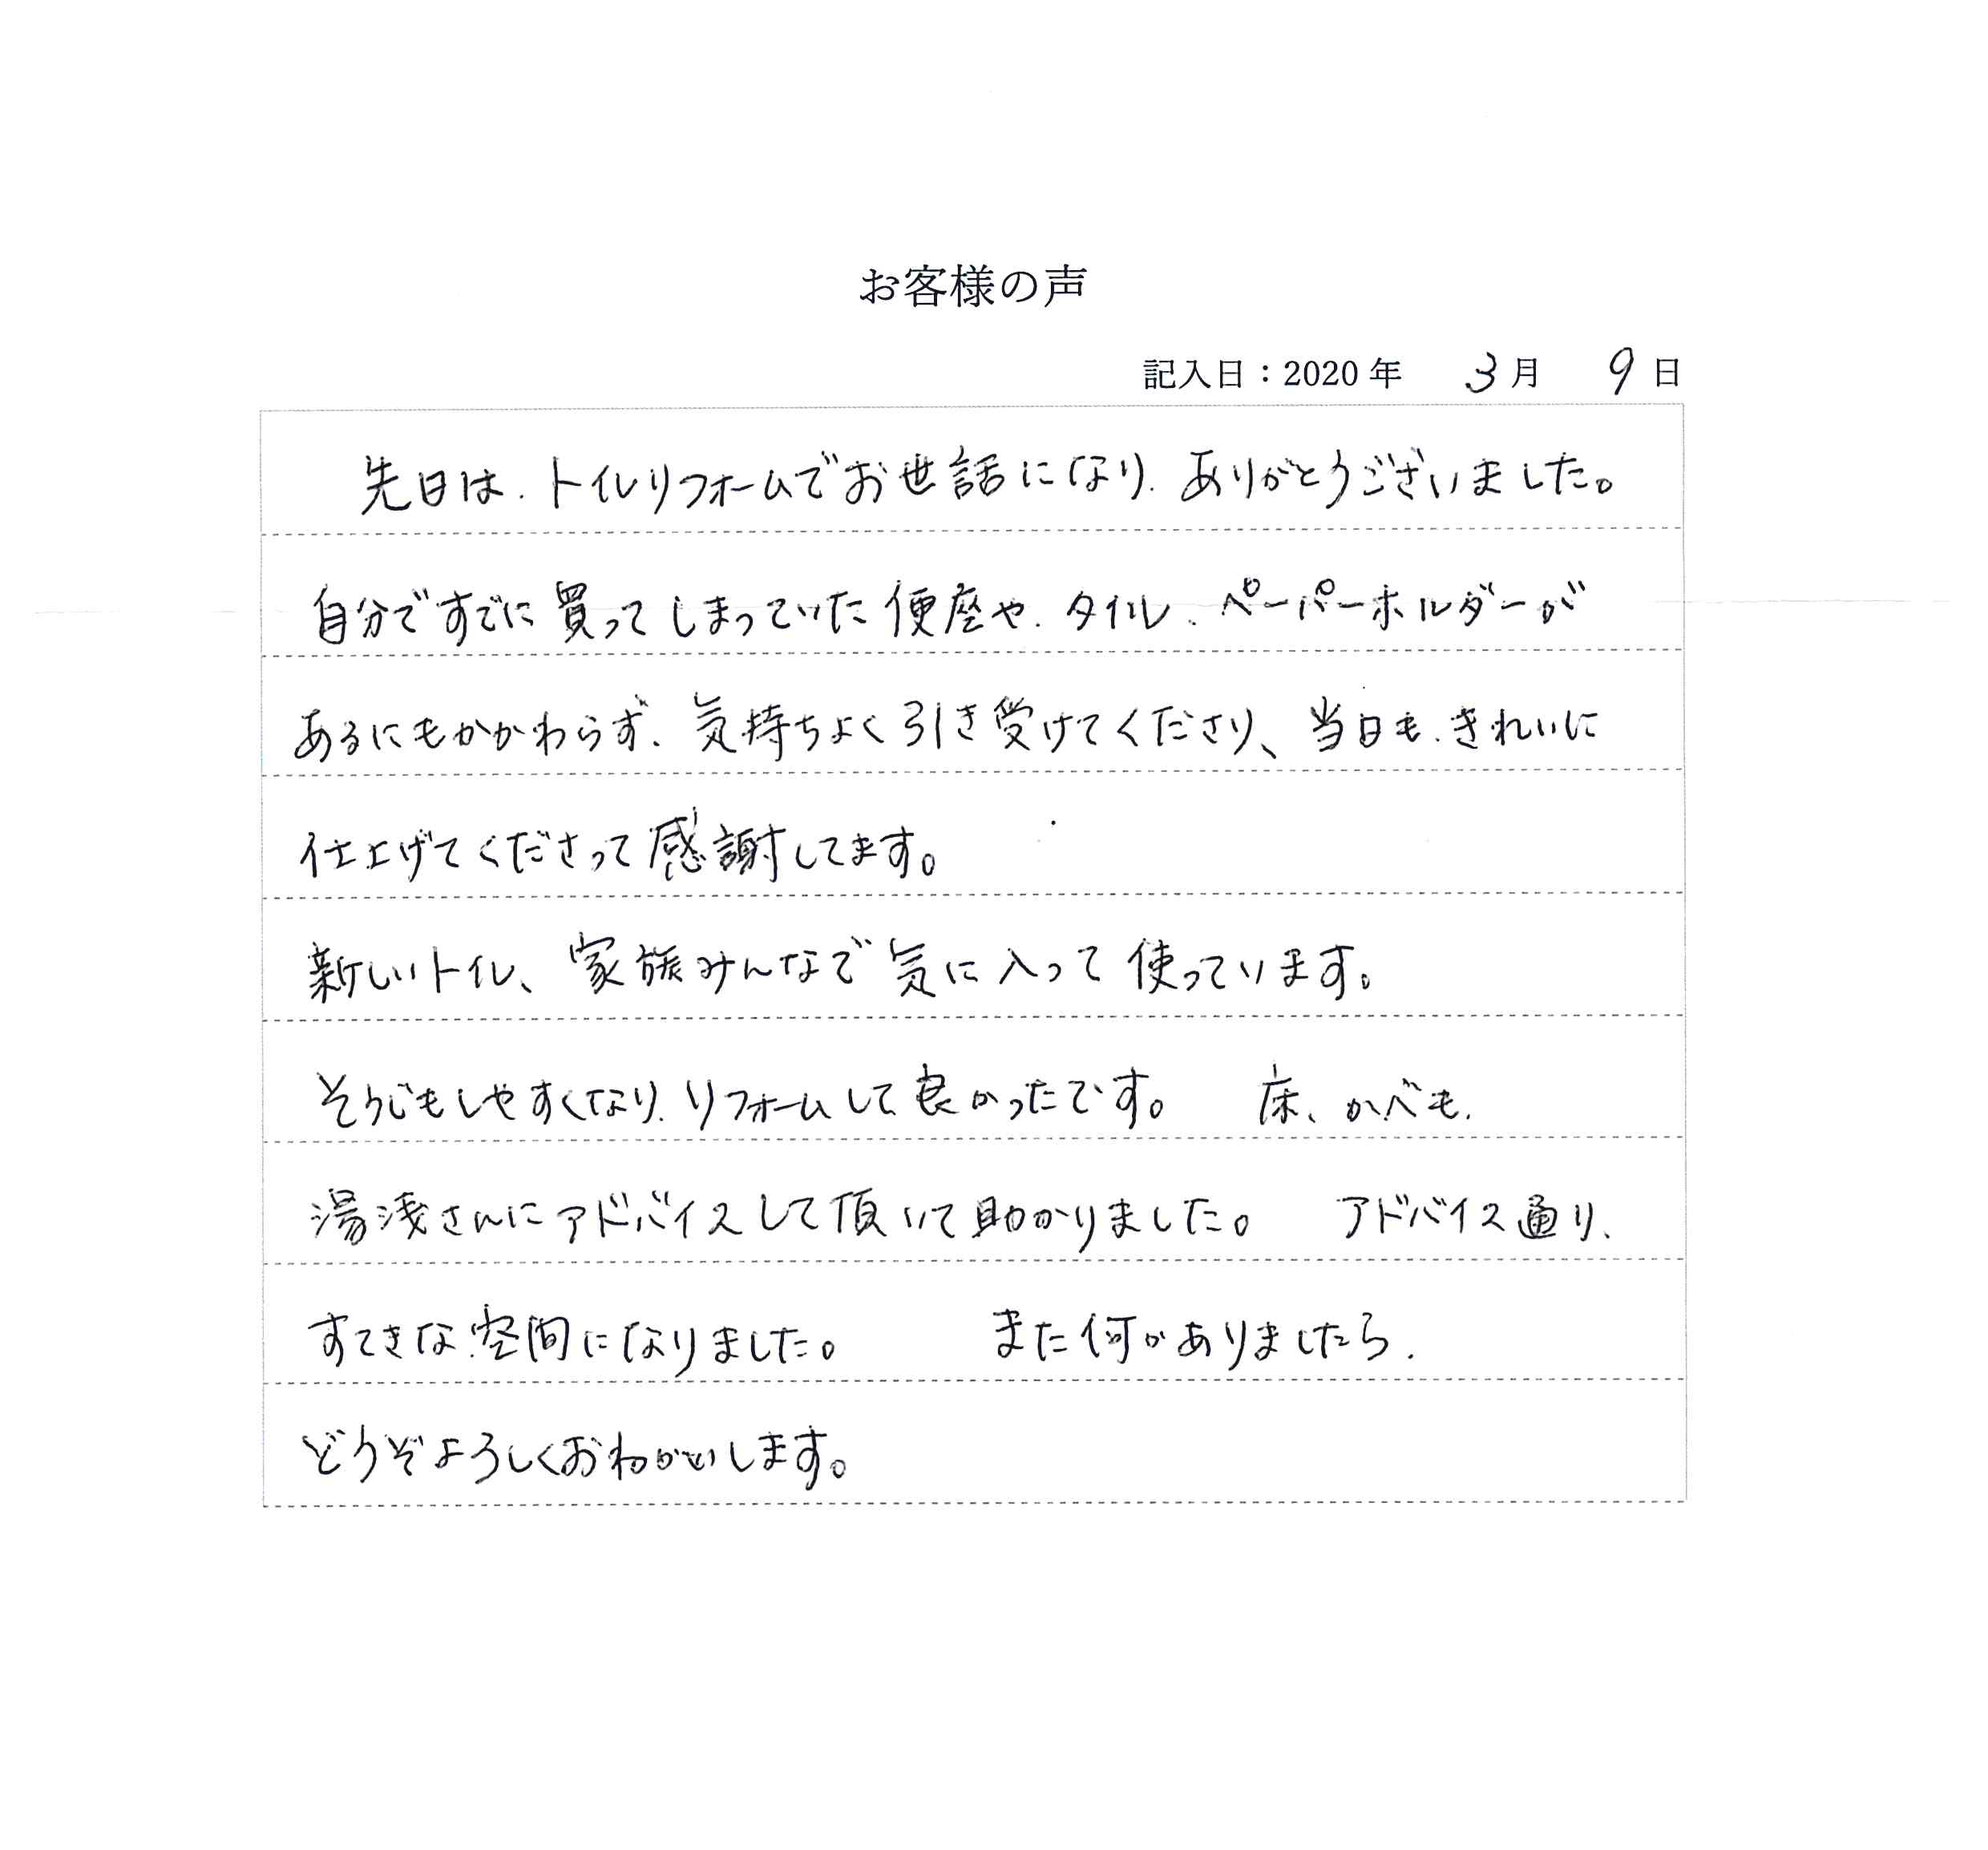 お客様の声
記入日：2020年 3月 9日
先日は、トイレリフォームでお世話になり、ありがとうございました。
自分ですでに買ってしまっていた便座や、タイル、ペーパーホルダーが
あるにもかかわらず、気持ちよく引き受けてくださり、当日も、きれいに
仕上げてくださって感謝してます。
新しいトイレ、家族みんなで気に入って使っています。
そうじもしやすくなり、リフォームして良かったです。 床、かべも、
湯浅さんにアドバイスして頂いて助かりました。 アドバイス通り、
すてきな空間になりました。 また何かありましたら、
どうぞよろしくおねがいします。